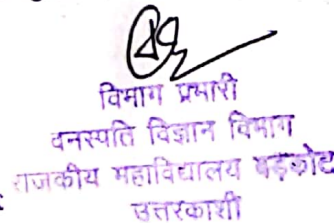 विभाग प्रभारी
वनस्पति विज्ञान विभाग
राजकीय महाविधालय बड़कोट
उत्तरकाशी